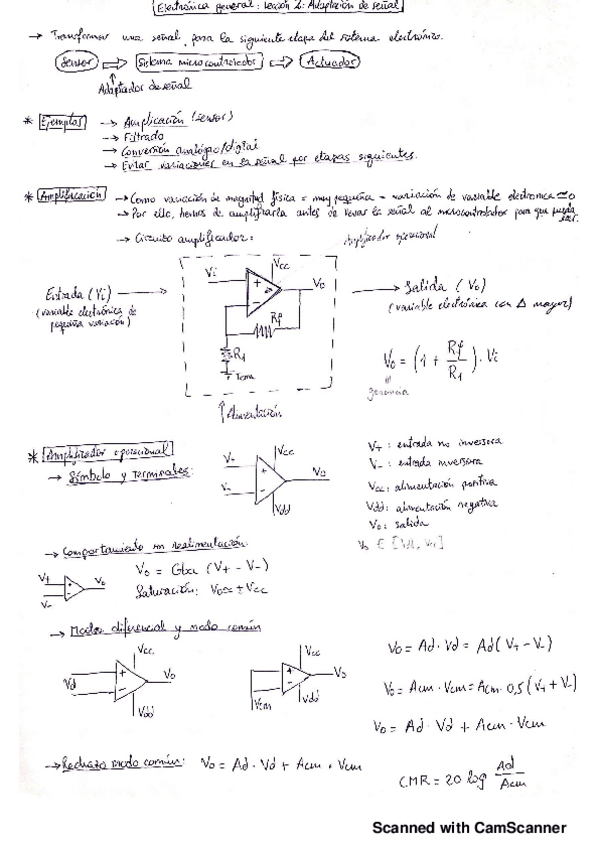 Electrónica general: Lección 2: Adaptación de señal
→ Transformar una señal para la siguiente etapa del sistema electrónico.
Sensor ⇨ Sistema microcontrolador ⇨ Actuador
Adaptador de señal
* Ejemplos → Amplificación (sensor)
→ Filtrado
→ Conversión analógico/digital
→ Evitar variaciones en la señal por etapas siguientes.
* Amplificación → Como variación de magnitud física = muy pequeña = variación de variable electrónica ≃ 0
→ Por ello, hemos de amplificarla antes de llevar la señal al microcontrolador para que pueda
→ Circuito amplificador:
Amplificador operacional
Entrada (Vi)
(variable electrónica de
pequeña variación)
Vi
Vcc
Vo
+
-
Rf
R1
Tierra
Alimentación
Salida (Vo)
(variable electrónica con Δ mayor)
Vo = (1 + Rf/R1) · Vi
* Amplificador operacional
→ Símbolo y terminales:
V+
V-
Vcc
Vo
Vdd
V+: entrada no inversora
V-: entrada inversora
Vcc: alimentación positiva
Vdd: alimentación negativa
Vo: salida
Vo ∈ [Vdd, Vcc]
→ Comportamiento sin realimentación
V+
V-
Vo
Vo = Gbcl (V+ - V-)
Saturación: Vo = ± Vcc
→ Modo diferencial y modo común
Vd
Vcc
Vo
Vdd
Vcm
Vcc
Vo
Vdd
Vo = Ad · Vd = Ad (V+ - V-)
Vo = Acm · Vcm = Acm · 0,5 (V+ + V-)
Vo = Ad · Vd + Acm · Vcm
→ Rechazo modo común: Vo = Ad · Vd + Acm · Vcm
CMR = 20 log Ad/Acm
Scanned with CamScanner